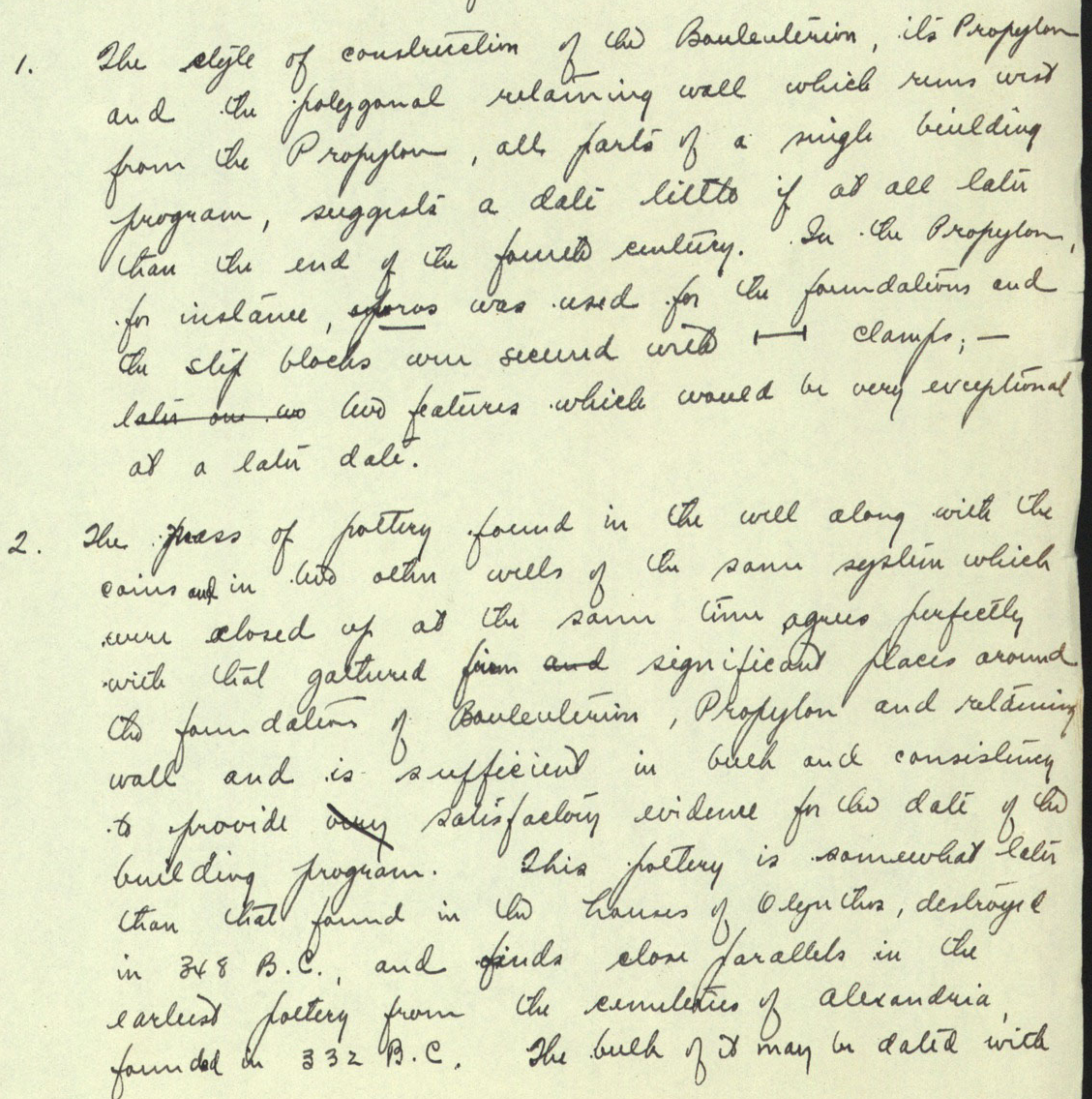 1. The style of construction of the Bouleuterion, its Propylon
and the polygonal retaining wall which runs west
from the Propylon, all parts of a single building
program, suggests a date little if at all later
than the end of the fourth century. In the Propylon,
for instance, poros was used for the foundations and
the slip blocks were secured with ⊢⊣ clamps; —
later two features which would be very exceptional
at a later date.
2. The mass of pottery found in the well along with the
coins and in two other wells of the same system which
were closed up at the same time agrees perfectly
with that gathered from and significant places around
the foundations of Bouleuterion, Propylon and retaining
wall and is sufficient in bulk and consistency
to provide very satisfactory evidence for the date of the
building program. This pottery is somewhat later
than that found in the houses of Olynthos, destroyed
in 348 B.C., and finds close parallels in the
earliest pottery from the cemeteries of Alexandria,
founded in 332 B.C. The bulk of it may be dated with